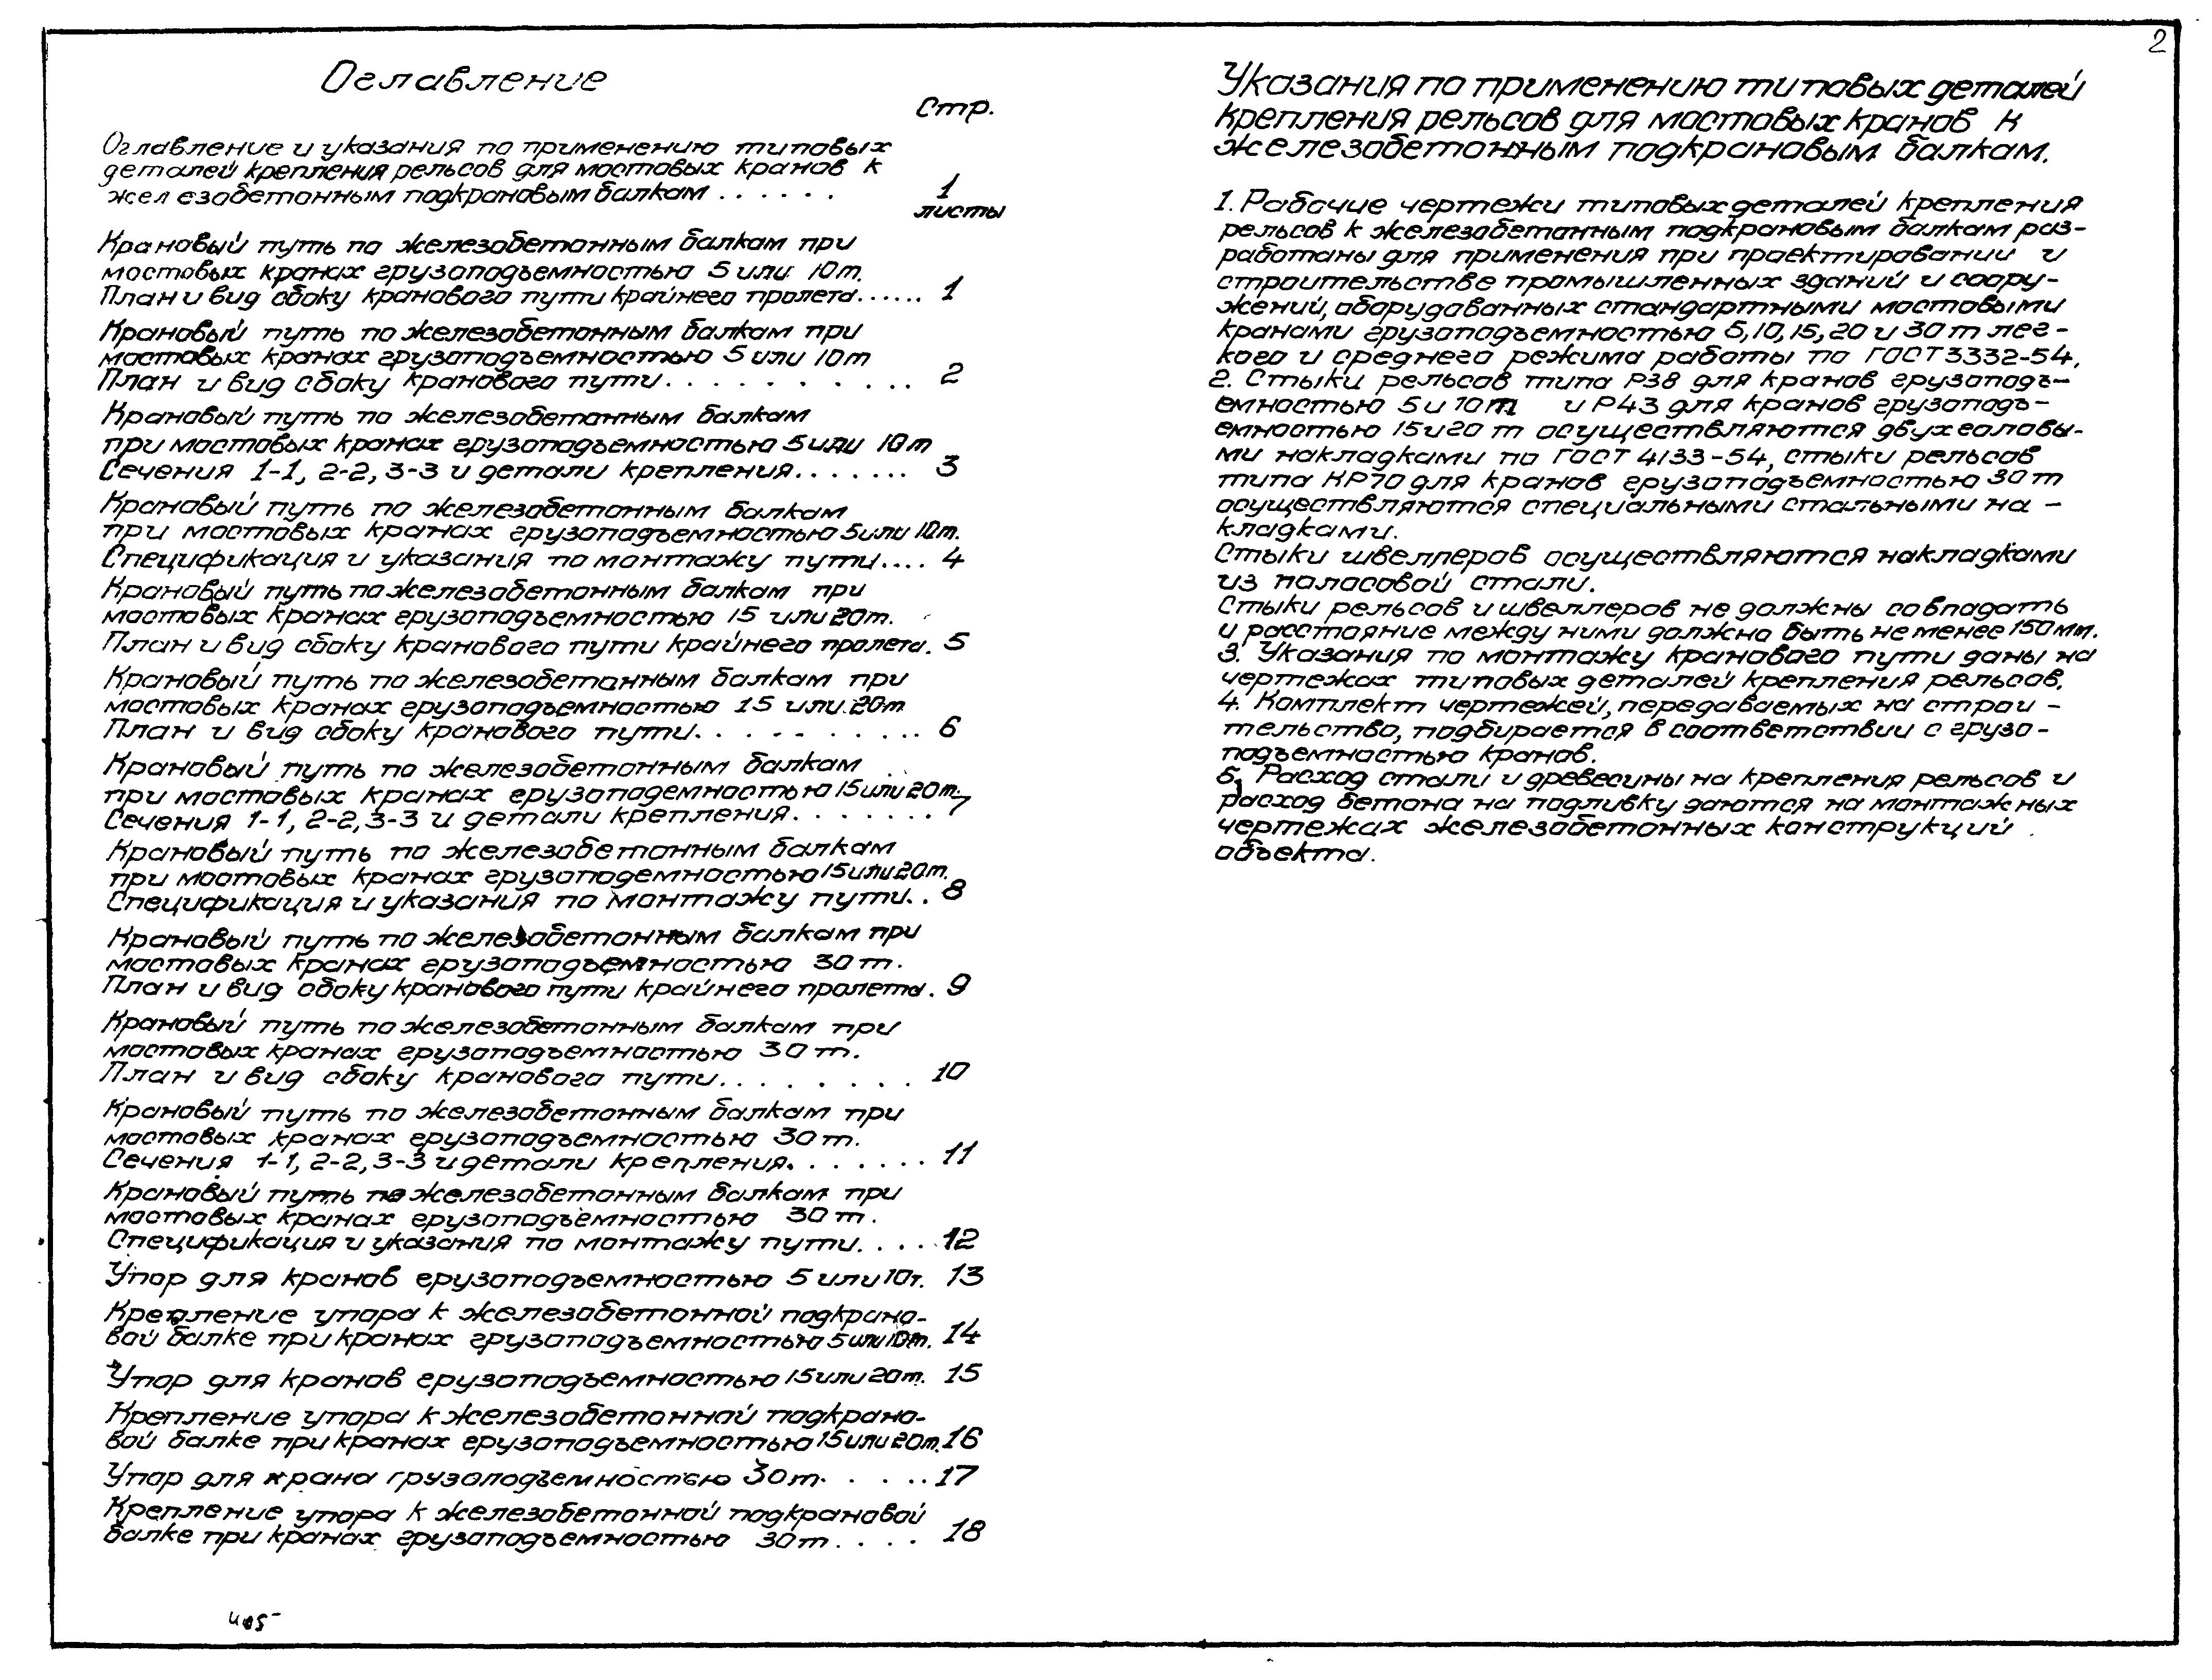 2
Оглавление
Стр.
Оглавление и указания по применению типовых
деталей крепления рельсов для мостовых кранов к
железобетонным подкрановым балкам . . . . . . 1
листы
Крановый путь по железобетонным балкам при
мостовых кранах грузоподъемностью 5 или 10т.
План и вид сбоку кранового пути крайнего пролета...... 1
Крановый путь по железобетонным балкам при
мостовых кранах грузоподъемностью 5 или 10т
План и вид сбоку кранового пути. . . . . . . . . . 2
Крановый путь по железобетонным балкам
при мостовых кранах грузоподъемностью 5 или 10т
Сечения 1-1, 2-2, 3-3 и детали крепления....... 3
Крановый путь по железобетонным балкам
при мостовых кранах грузоподъемностью 5 или 10т.
Спецификация и указания по монтажу пути.... 4
Крановый путь по железобетонным балкам при
мостовых кранах грузоподъемностью 15 или 20т.
План и вид сбоку кранового пути крайнего пролета. 5
Крановый путь по железобетонным балкам при
мостовых кранах грузоподъемностью 15 или 20т
План и вид сбоку кранового пути. . . . . . . . . . 6
Крановый путь по железобетонным балкам
при мостовых кранах грузоподемностью 15 или 20т.
Сечения 1-1, 2-2, 3-3 и детали крепления. . . . . . . 7
Крановый путь по железобетонным балкам
при мостовых кранах грузоподемностью 15 или 20т.
Спецификация и указания по монтажу пути. . 8
Крановый путь по железобетонным балкам при
мостовых кранах грузоподъемностью 30т.
План и вид сбоку кранового пути крайнего пролета. 9
Крановый путь по железобетонным балкам при
мостовых кранах грузоподъемностью 30т.
План и вид сбоку кранового пути. . . . . . . . 10
Крановый путь по железобетонным балкам при
мостовых кранах грузоподъемностью 30т.
Сечения 1-1, 2-2, 3-3 и детали крепления. . . . . . . 11
Крановый путь по железобетонным балкам при
мостовых кранах грузоподъемностью 30т.
Спецификация и указания по монтажу пути. . . . . 12
Упор для кранов грузоподъемностью 5 или 10т. 13
Крепление упора к железобетонной подкрано-
вой балке при кранах грузоподъемностью 5 или 10т. 14
Упор для кранов грузоподъемностью 15 или 20т. 15
Крепление упора к железобетонной подкрано-
вой балке при кранах грузоподъемностью 15 или 20т. 16
Упор для крана грузоподъемностью 30т. . . . . 17
Крепление упора к железобетонной подкрановой
балке при кранах грузоподъемностью 30т . . . . 18
Указания по применению типовых деталей
крепления рельсов для мостовых кранов к
железобетонным подкрановым балкам.
1. Рабочие чертежи типовых деталей крепления
рельсов к железобетонным подкрановым балкам раз-
работаны для применения при проектировании и
строительстве промышленных зданий и соору-
жений, оборудованных стандартными мостовыми
кранами грузоподъемностью 5, 10, 15, 20 и 30т лег-
кого и среднего режима работы по ГОСТ 3332-54.
2. Стыки рельсов типа Р38 для кранов грузоподъ-
емностью 5 и 10т и Р43 для кранов грузоподъ-
емностью 15 и 20 т осуществляются двухголовы-
ми накладками по ГОСТ 4133-54, стыки рельсов
типа КР70 для кранов грузоподъемностью 30т
осуществляются специальными стальными на-
кладками.
Стыки швеллеров осуществляются накладками
из полосовой стали.
Стыки рельсов и швеллеров не должны совпадать
и расстояние между ними должно быть не менее 150мм.
3. Указания по монтажу кранового пути даны на
чертежах типовых деталей крепления рельсов.
4. Комплект чертежей, передаваемых на строи-
тельство, подбирается в соответствии с грузо-
подъемностью кранов.
5. Расход стали и древесины на крепления рельсов и
расход бетона на подливку даются на монтажных
чертежах железобетонных конструкций
объекта.